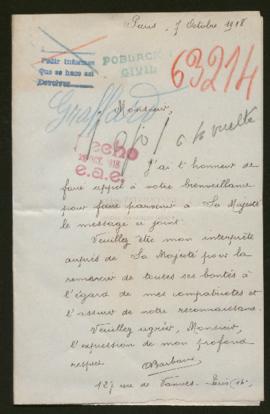 Paris, 7 Octobre 1918
Pedir informes
Que se hace así
Devolver
POBLACION
CIVIL
63214
Graffard
Monsieur,
ojo a la vuelta
echo
OCT. 1918
e.a.e.
J'ai l'honneur de
faire appel à votre bienveillance
pour faire parvenir à Sa Majesté
le message ci joint.
Veuillez être mon interprète
auprès de Sa Majesté pour la
remercier de toutes ses bontés à
l'égard de mes compatriotes et
l'assurer de notre reconnaissance.
Veuillez agréer, Monsieur,
l'expression de mon profond
respect.
Barbara
127 rue de Vanves - Paris (14e)